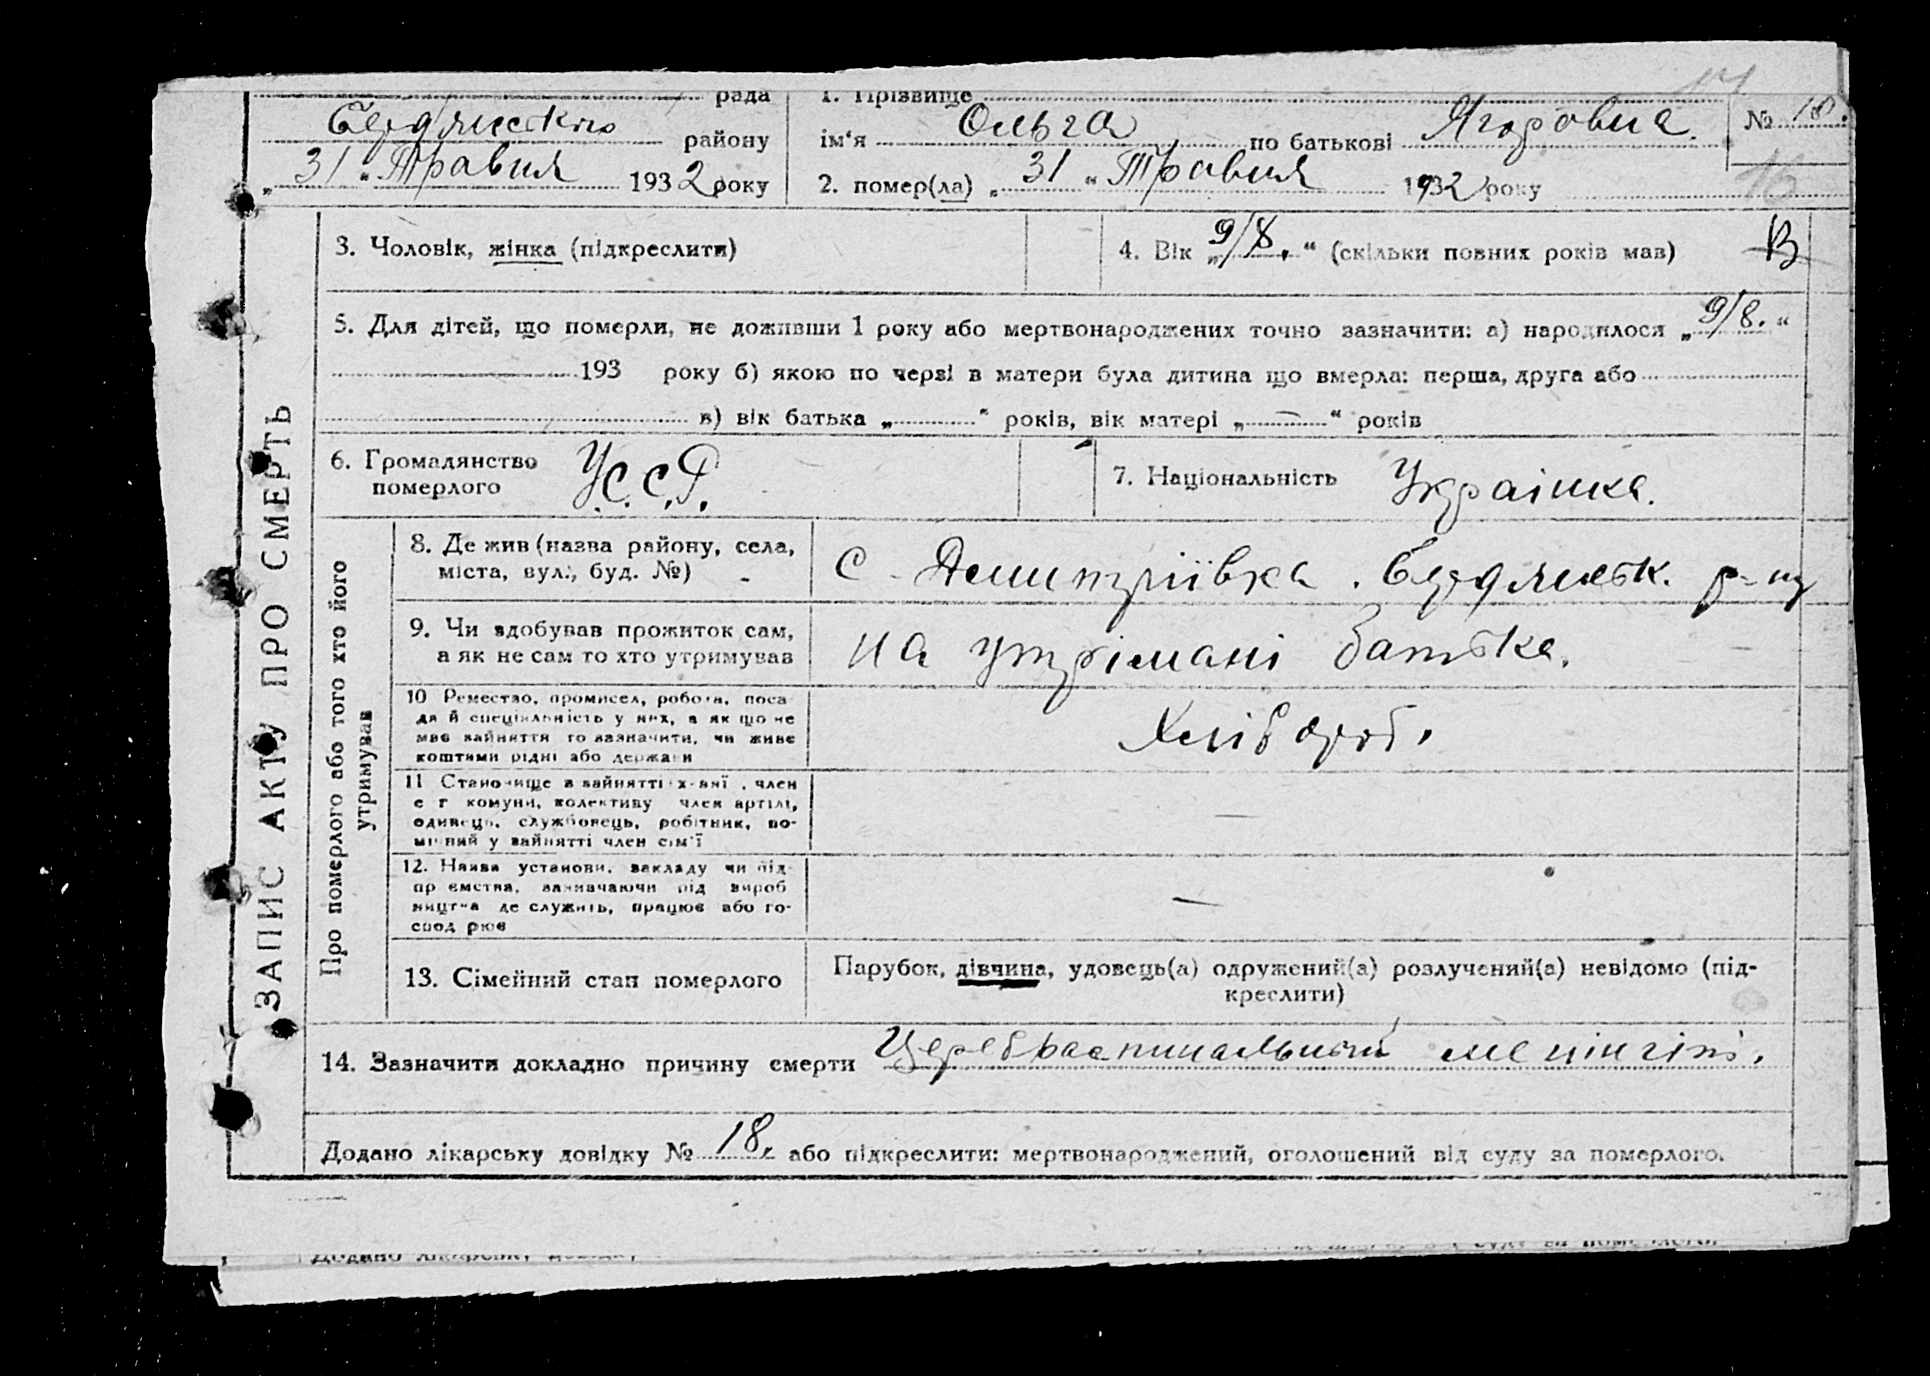 рада
1. Прізвище
Бердянського району
ім'я Ольга по батькові Ягоровна.
№ 18.
„31“ Травня 1932 року
2. помер(ла) „31“ Травня 1932 року
16
3. Чоловік, жінка (підкреслити)
4. Вік „9/8.“ (скільки повних років мав)
В
5. Для дітей, що померли, не доживши 1 року або мертвонароджених точно зазначити: а) народилося „9/8.“
193 року б) якою по черзі в матери була дитина що вмерла: перша, друга або
в) вік батька „ “ років, вік матері „—“ років
6. Громадянство померлого У.С.С.Р.
7. Національність Українка.
ЗАПИС АКТУ ПРО СМЕРТЬ
Про померлого або того хто його утримував
8. Де жив (назва району, села,
міста, вул., буд. №)
с. Дмитріівка. Бердянськ. р-ну
9. Чи здобував прожиток сам,
а як не сам то хто утримував
на утрімані батька.
10 Ремество, промисел, робота, поса-
да й спеціяльність у них, а як що не
має зайняття то зазначити, чи живе
коштами рідні або держави
Хлібороб.
11 Становище в зайнятті член
с г комуни, колективу член артілі,
одинець, службовець, робітник, по-
мічний у зайнятті член сім'ї
—
12. Назва установи, закладу чи під-
пр ємства, зазначаючи під вироб
ництва де служить, працює або го-
спод рює
—
13. Сімейний стан померлого
Парубок, дівчина, удовець(а) одружений(а) розлучений(а) невідомо (під-
креслити)
14. Зазначити докладно причину смерти Цереброспинальний менінгіт.
Додано лікарську довідку № 18. або підкреслити: мертвонароджений, оголошений від суду за померлого.